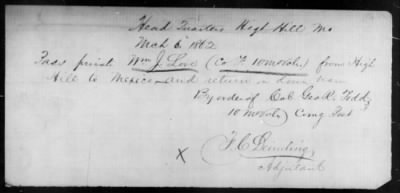 Head Quarters High Hill Mo
Mch 6th 1862
Pass private Wm J. Love (Co F 10 MoVols) from High
Hill to Mexico and return in down train
By order of Col Geo R. Todd
10 MoVols) Comg Post
X
Adjutant